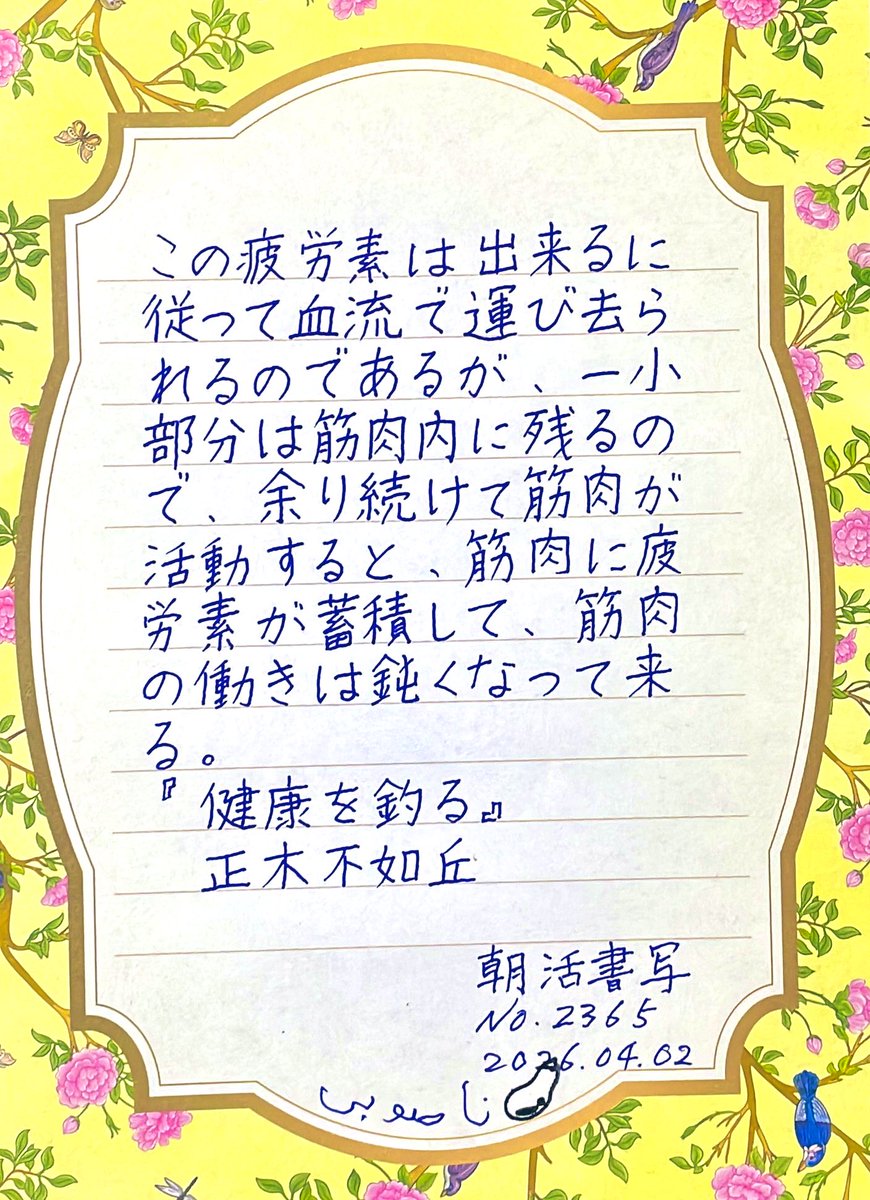 この疲労素は出来るに
従って血流で運び去ら
れるのであるが、一小
部分は筋肉内に残るの
で、余り続けて筋肉が
活動すると、筋肉に疲
労素が蓄積して、筋肉
の働きは鈍くなって来
る。
『健康を釣る』
正木不如丘
朝活書写
No. 2365
2026.04.02